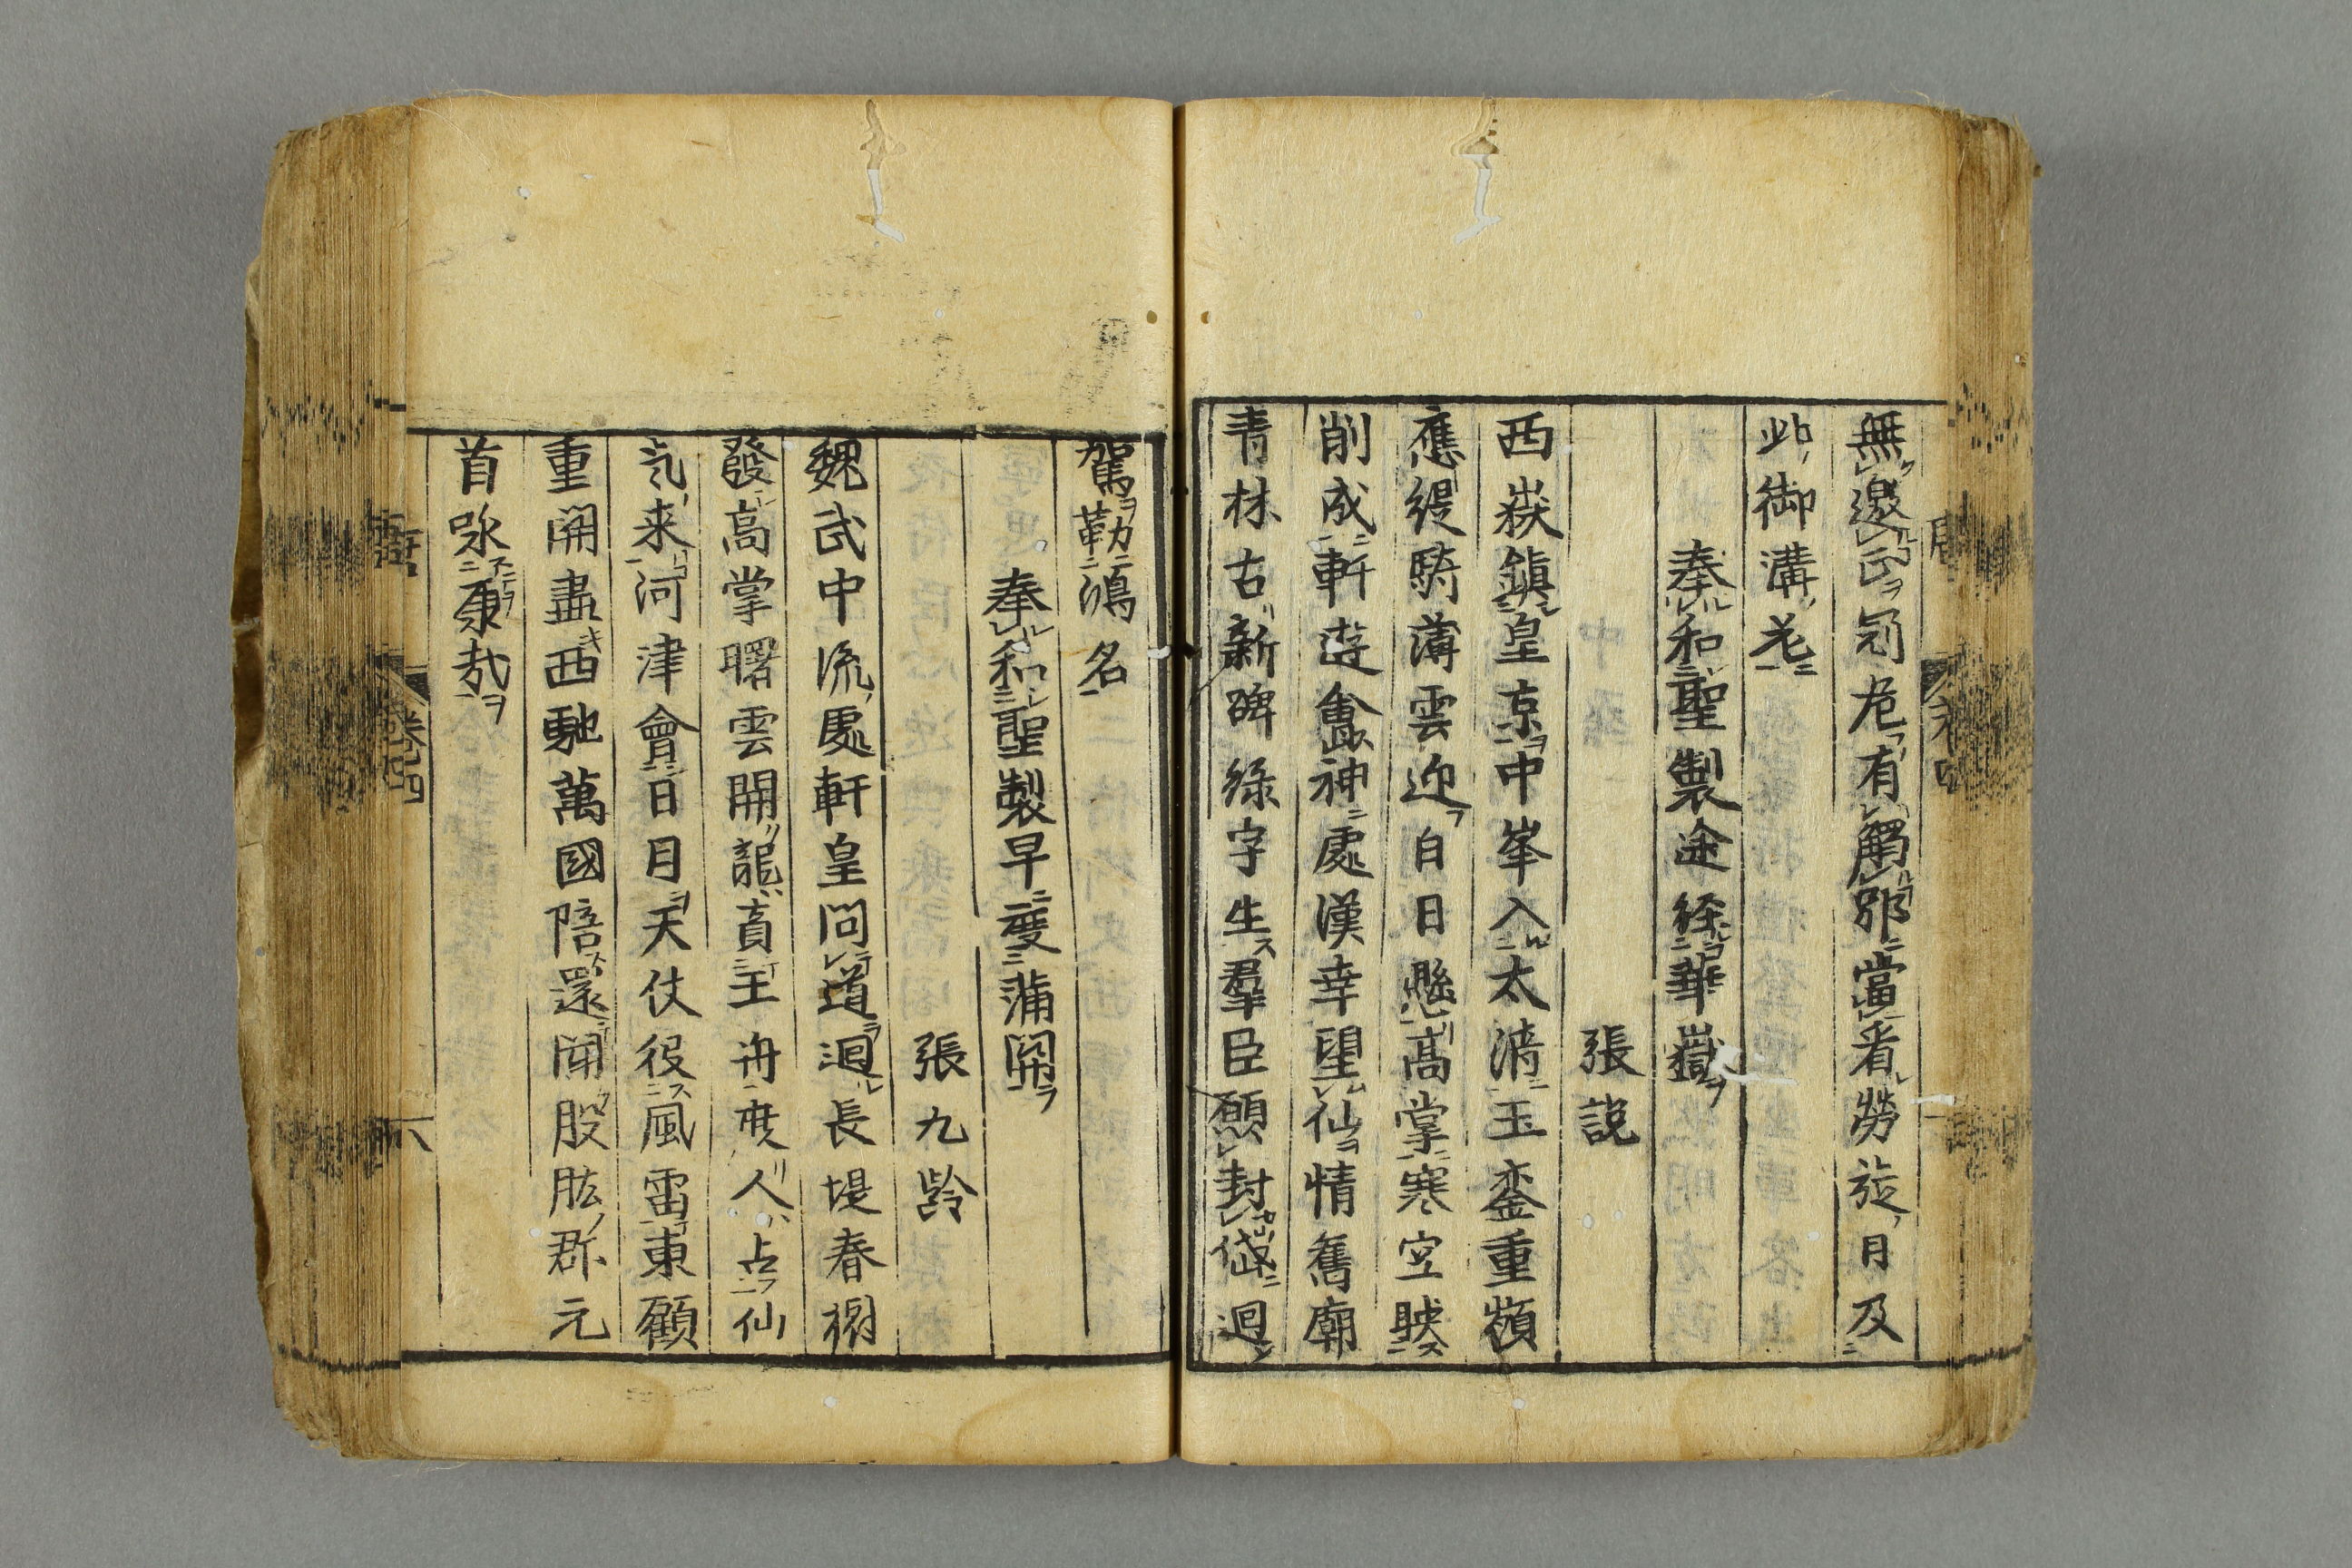 無邀正冠危有觸邪當看勞旋日及
此御溝花
奉和聖製途經華嶽
張説
西嶽鎮皇京中峯入太清玉鑾重嶺
應緹騎薄雲迎白日懸高掌寒空映
削成軒遊會神處漢幸望仙情舊廟
青林古新碑綠字生羣臣願封岱迴
駕勒鴻名
奉和聖製早度蒲關
張九齡
魏武中流處軒皇問道迴長堤春樹
發高掌曙雲開龍負王舟度人占仙
氣来河津會日月天仗役風雷東顧
重開盡西馳萬國陪還聞股肱郡元
首咏康哉
唐
卷四
八